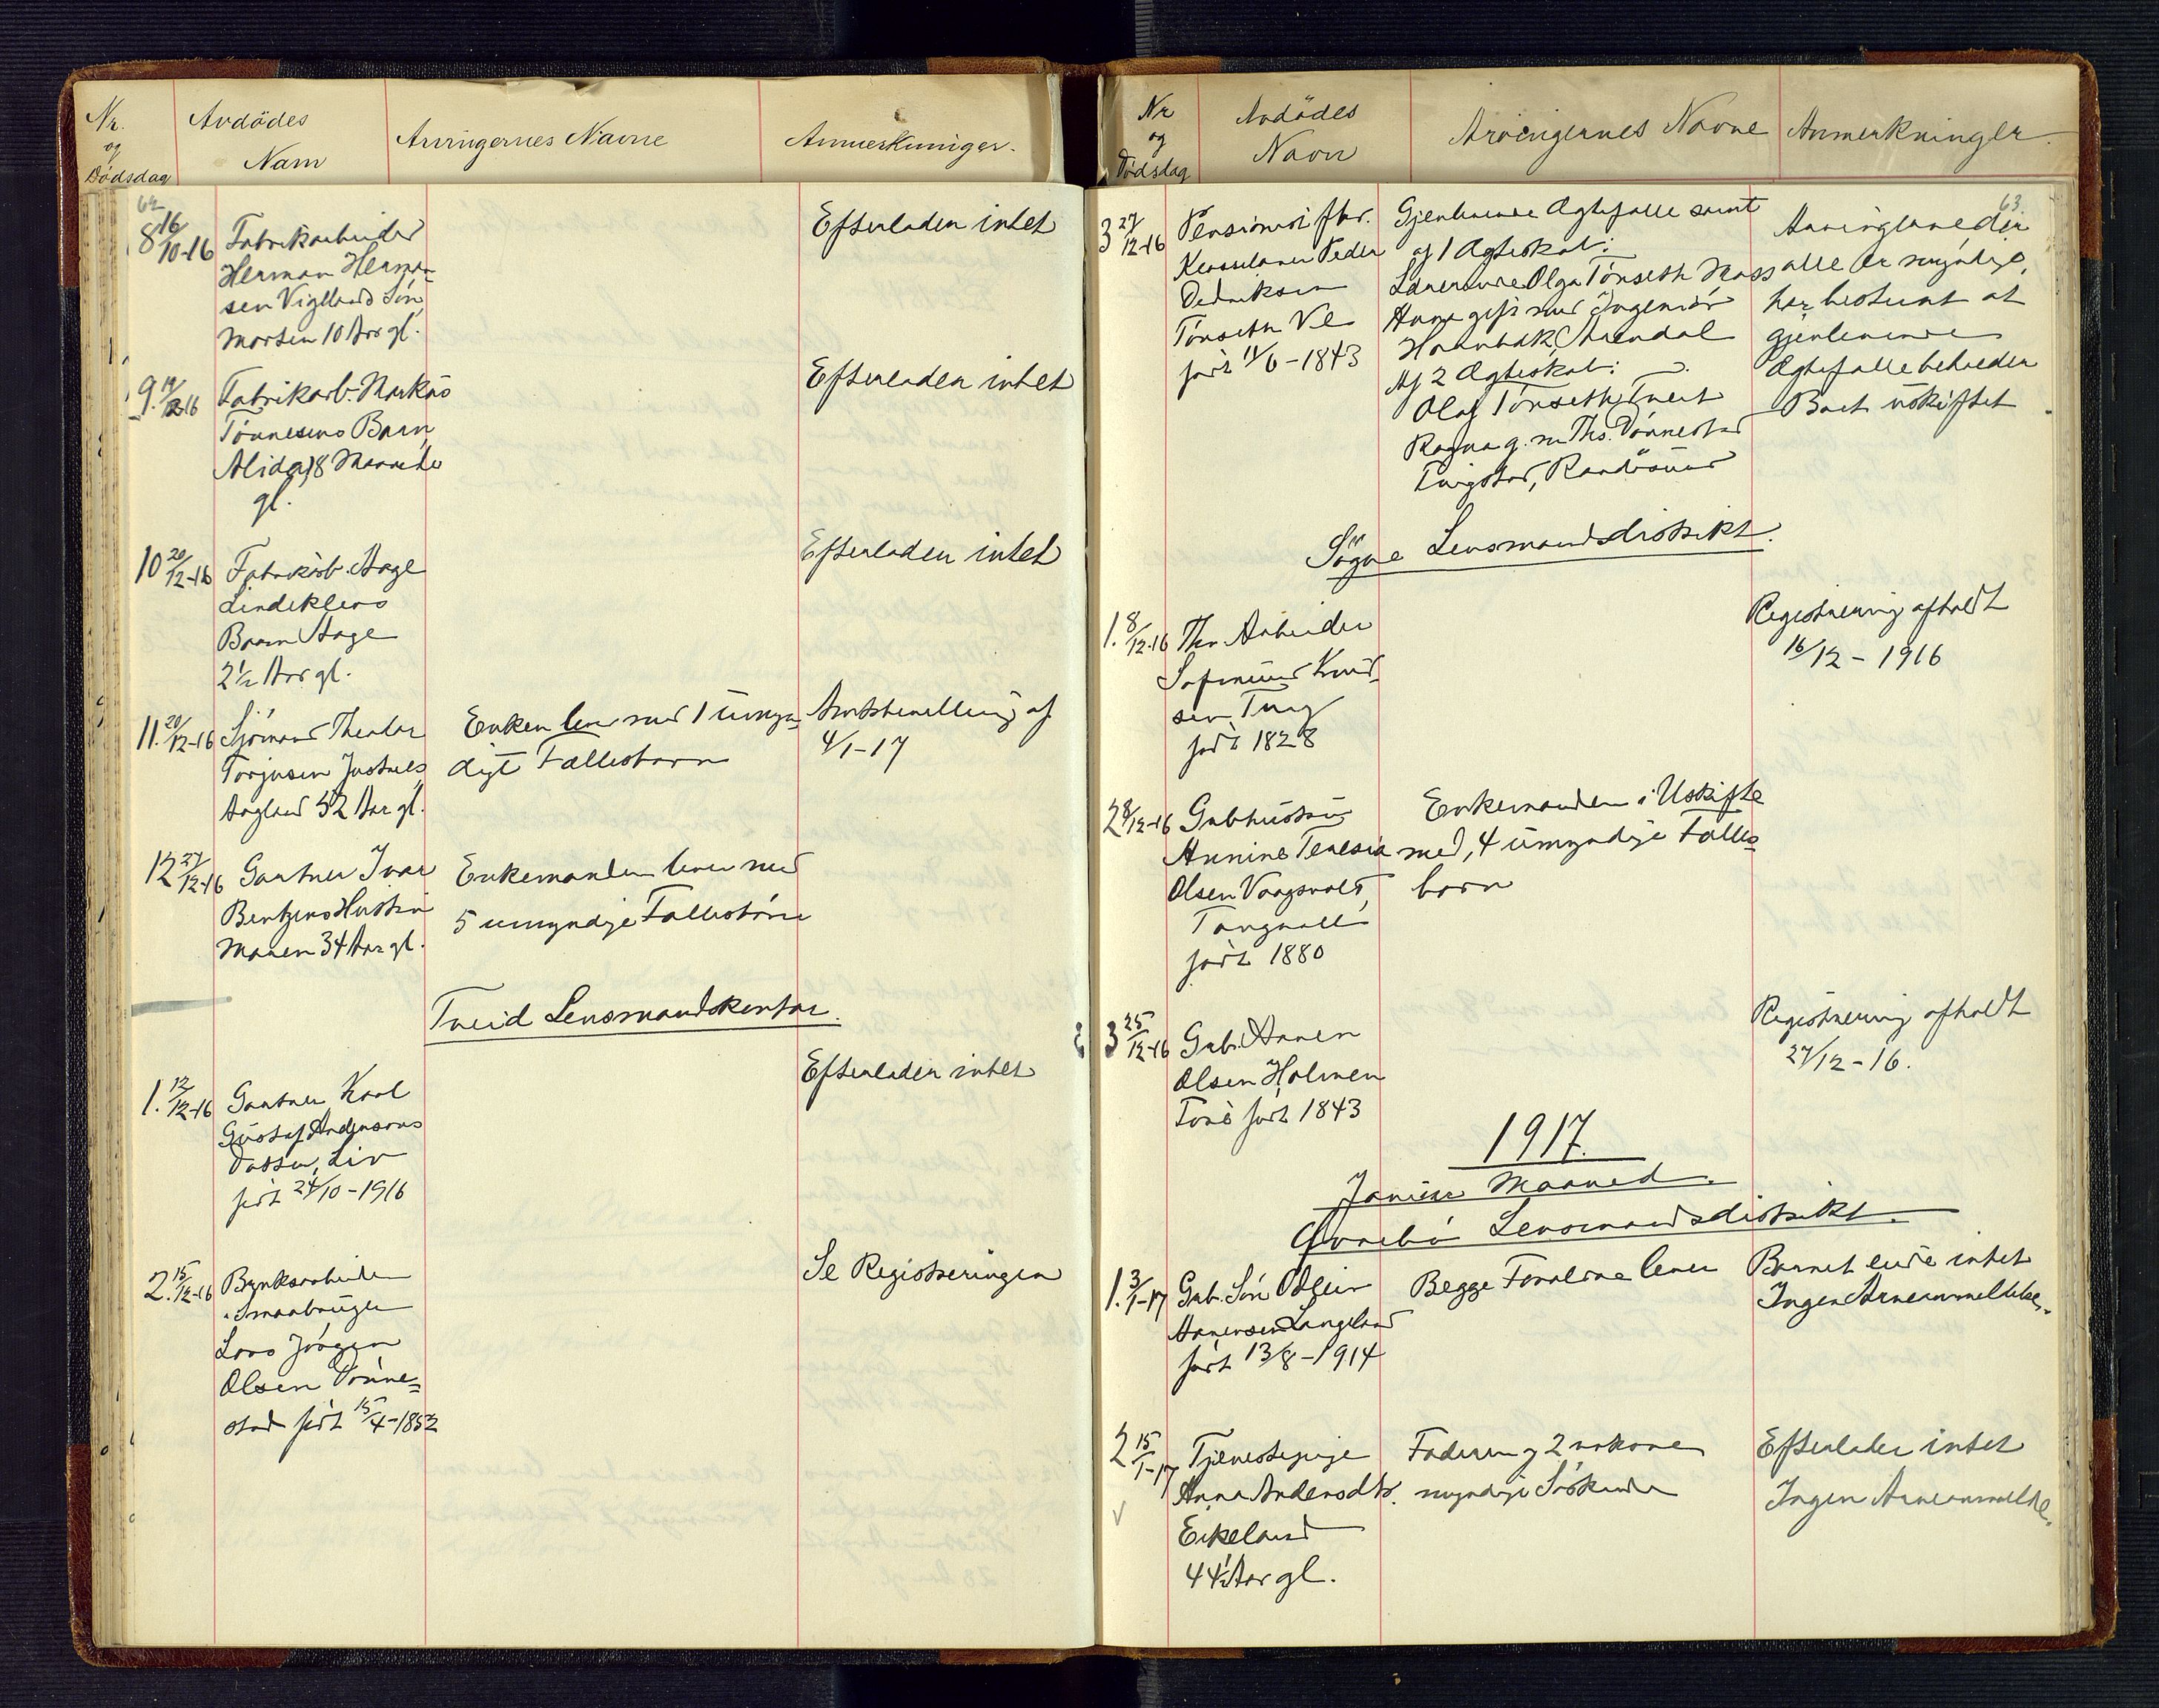 Nr.
og
Dödsdag
Avdödes
Navn
Arvingernes Navne
Anmerkninger.
62
8 16/10-16
Fabrikarbeider
Herman Herman-
sen Vigelands Sön
Morten 10 Aar gl.
Efterlader intet
9. 14/12-16
Fabrikarb. Markus
Tönnesens Barn
Alida, 8 Maaneder
gl.
Efterlader intet
10 20/12-16
Fabrikarb. Aage
Lindeklevs
Barn Aage
2½ Aar gl.
Efterlader intet
11. 20/12-16
Sjömand Theodor
Torjusen Justnes
Augland 52 Aar gl.
Enken lever med 1 umyn-
digt Fællesbarn
Amtsbevilling af
4/1-17
12 27/12-16
Gartner Ivar
Bentzens Hustru
Maren 34 Aar gl.
Enkemanden lever med
5 umyndige Fællesbörn
Tveid Lensmandskontor.
1. 12/12-16
Gartner Karl
Gustaf Andersons
Datter, Liv
født 24/10-1916
Efterlader intet
2. 15/12-16
Bruksarbeider
Smaabruger
Lars Jörgen
Olsen Dönne-
stad födt 15/4-1852
Se Registreringen
Nr
og
Dödsdag
Avdödes
Navn
Arvingernes Navne
Anmerkninger.
63
3 27/12-16
Pensionist fhv.
Kirkesanger Peder
Dedriksen
Tönseth Ve
født 11/6-1843
Gjenlevende Ægtefælle samt
af 1 Ægteskab:
Lærerinde Olga Tönseth Moss
Anna gift med Ingeniör
Hornbæk, Arendal
Af 2 Ægteskab:
Olaf Tönseth, Tveit
Ragna g. m. Ths. Dönnestad
Tingstad, Randösund
Arvingerne der
alle er myndige,
har bestemt at
gjenlevende
Ægtefælle beholder
Boet uskiftet
Sögne Lensmandsdistrikt.
1. 8/12-16
Fhv Arbeider
Sofinius Knud-
sen Tag
födt 1828
Registrering afholdt
16/12-1916
2 8/12-16
Gbr. hustru
Annine Teresia
Olsen Vaagsvoll,
Tangvall
født 1880
Enkemanden i Uskifte
med, 4 umyndige Fælles-
barn
3 25/12-16
Gbr. Anen
Olsen Holmen
Torö födt 1843
Registrering afholdt
27/12-16.
1917.
Januar Maaned.
Øvrebö Lensmandsdistrikt.
1. 3/1-17
Gbr. Sön Odlein
Aanensen Langeland
født 13/8-1914
Begge Forældre lever
Barnet eiede intet
Ingen Arveanmeldelse.
2 15/1-17
Tjenestepige
Anna Andersdtr.
Eikeland
44½ Aar gl.
Faderen og 2 voksne
myndige Söskende
Efterlader intet
Ingen Arveanmelde.